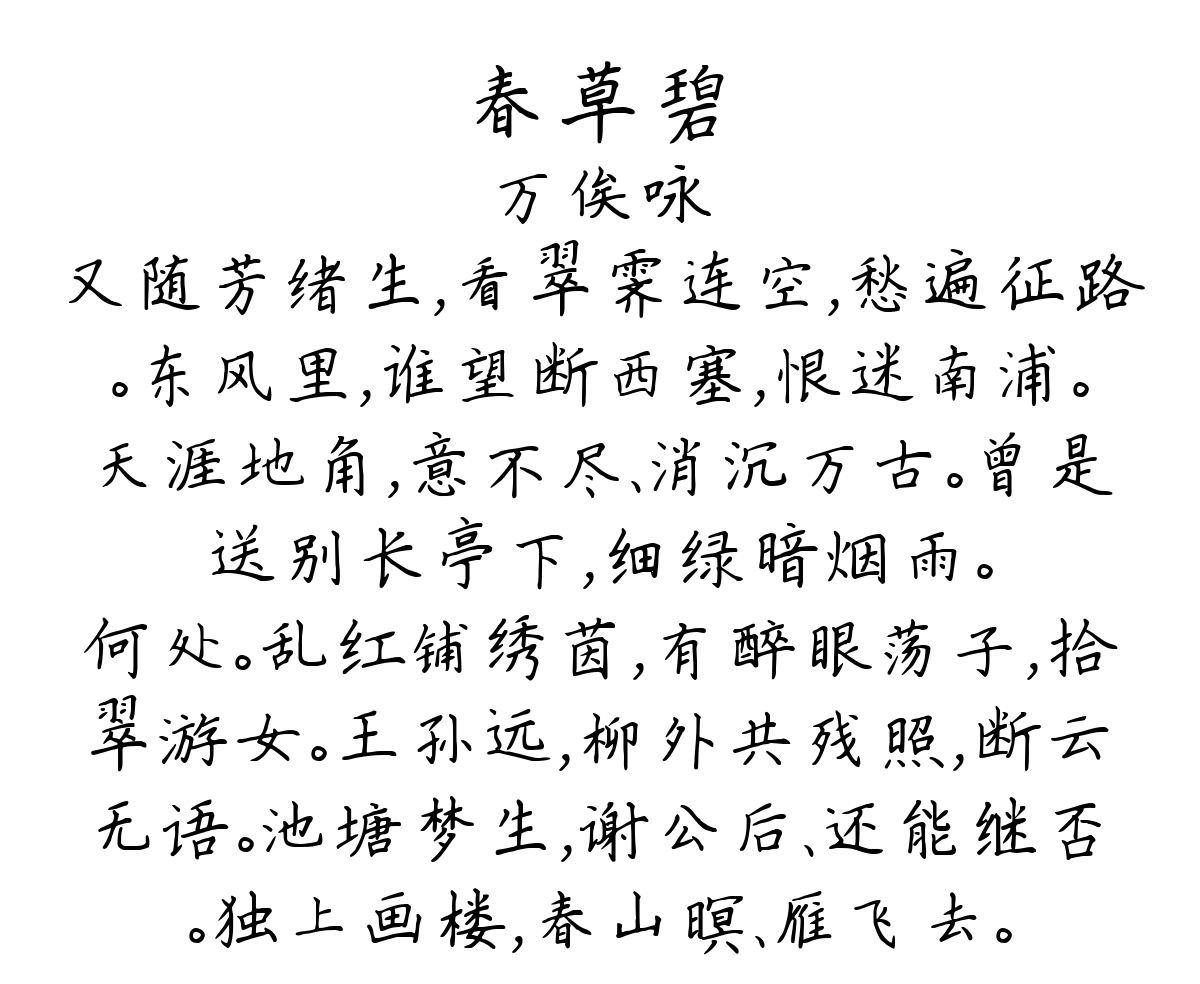 春草碧
万俟咏
又随芳绪生,看翠霁连空,愁遍征路
。东风里,谁望断西塞,恨迷南浦。
天涯地角,意不尽、消沉万古。曾是
送别长亭下,细绿暗烟雨。
何处。乱红铺绣茵,有醉眼荡子,拾
翠游女。王孙远,柳外共残照,断云
无语。池塘梦生,谢公后、还能继否
。独上画楼,春山暝、雁飞去。